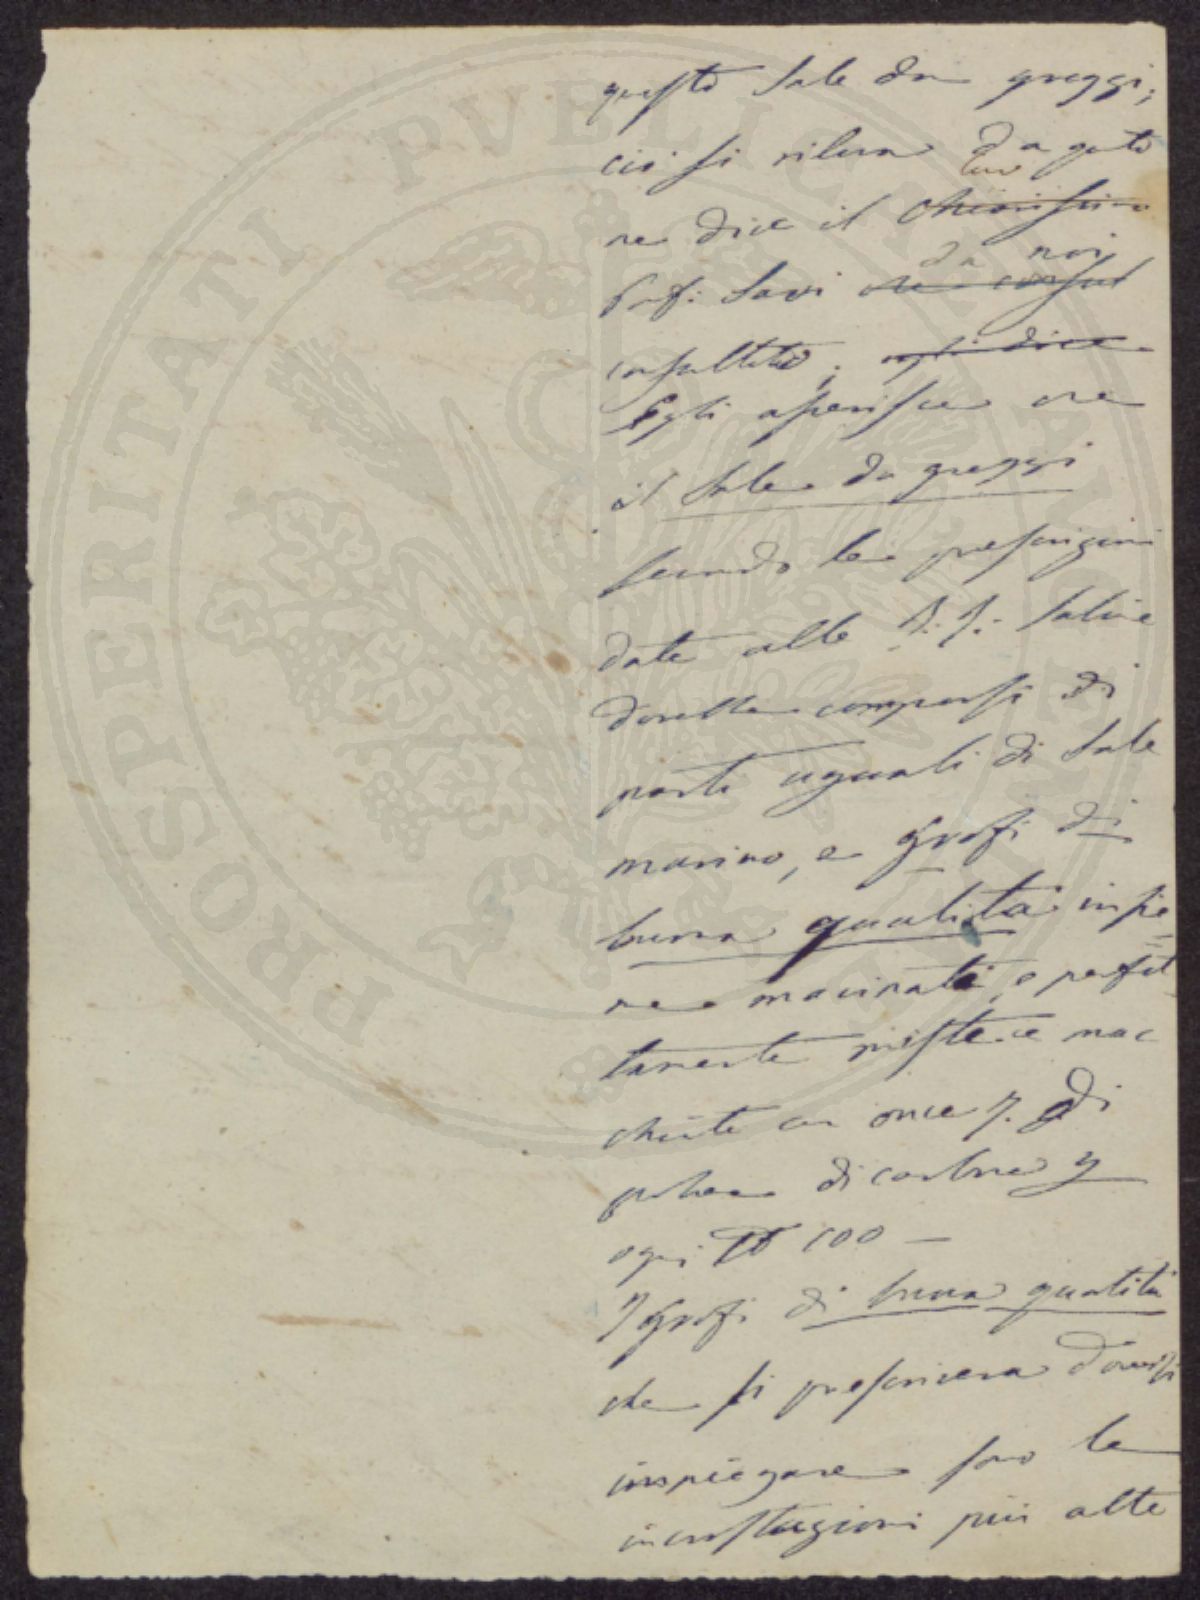 questo Sale da greggi;
ciò si rileva da quto
ne dice il chiarissimo
Prof: Savi che consul
da noi
consultato; egli dice
Egli asserisce che
il Sale da greggi
secondo le prescrizioni
date alle I: I: Saline
dovette comporsi di
parti uguali di Sale
marino, e Grofi di
buona qualità insie
me macinati, e perfet
tamente miste e mac
chiate con once 7. di
polvere di carbone p
ogni ℔ 100 —
I Grofi di buona qualità
che si prescriveva doversi
impiegare sono le
incrostazioni più alte
PROSPERITATI PVBLICAE AVGENDAE